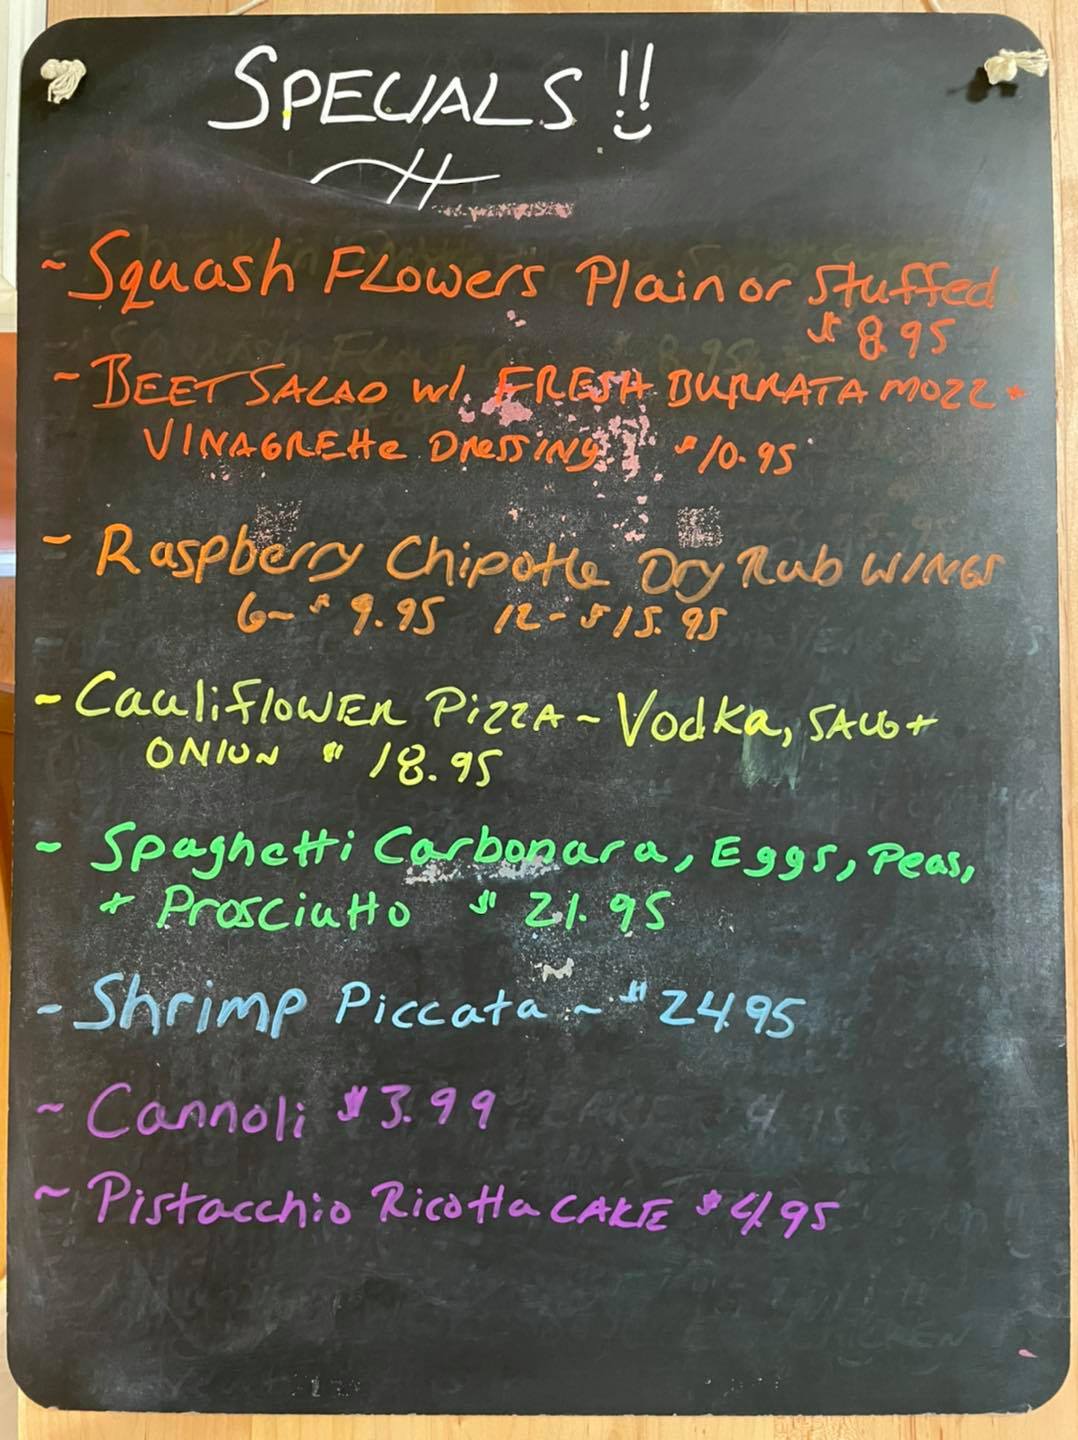 SPECIALS !!
~ Squash Flowers Plain or Stuffed
$ 8.95
~ BEET SALAD w/. FRESH BURRATA MOZZ +
VINAGRETTE DRESSING $10.95
~ Raspberry Chipotle Dry Rub WINGS
6~ $ 9.95 12 - $15.95
~ CauliFLOWER PIZZA ~ Vodka, SAUG +
ONION $ 18.95
~ Spaghetti Carbonara, Eggs, Peas,
+ Prosciutto $ 21.95
- Shrimp Piccata ~ $24.95
~ Cannoli $3.99
~ Pistacchio Ricotta CAKE $4.95